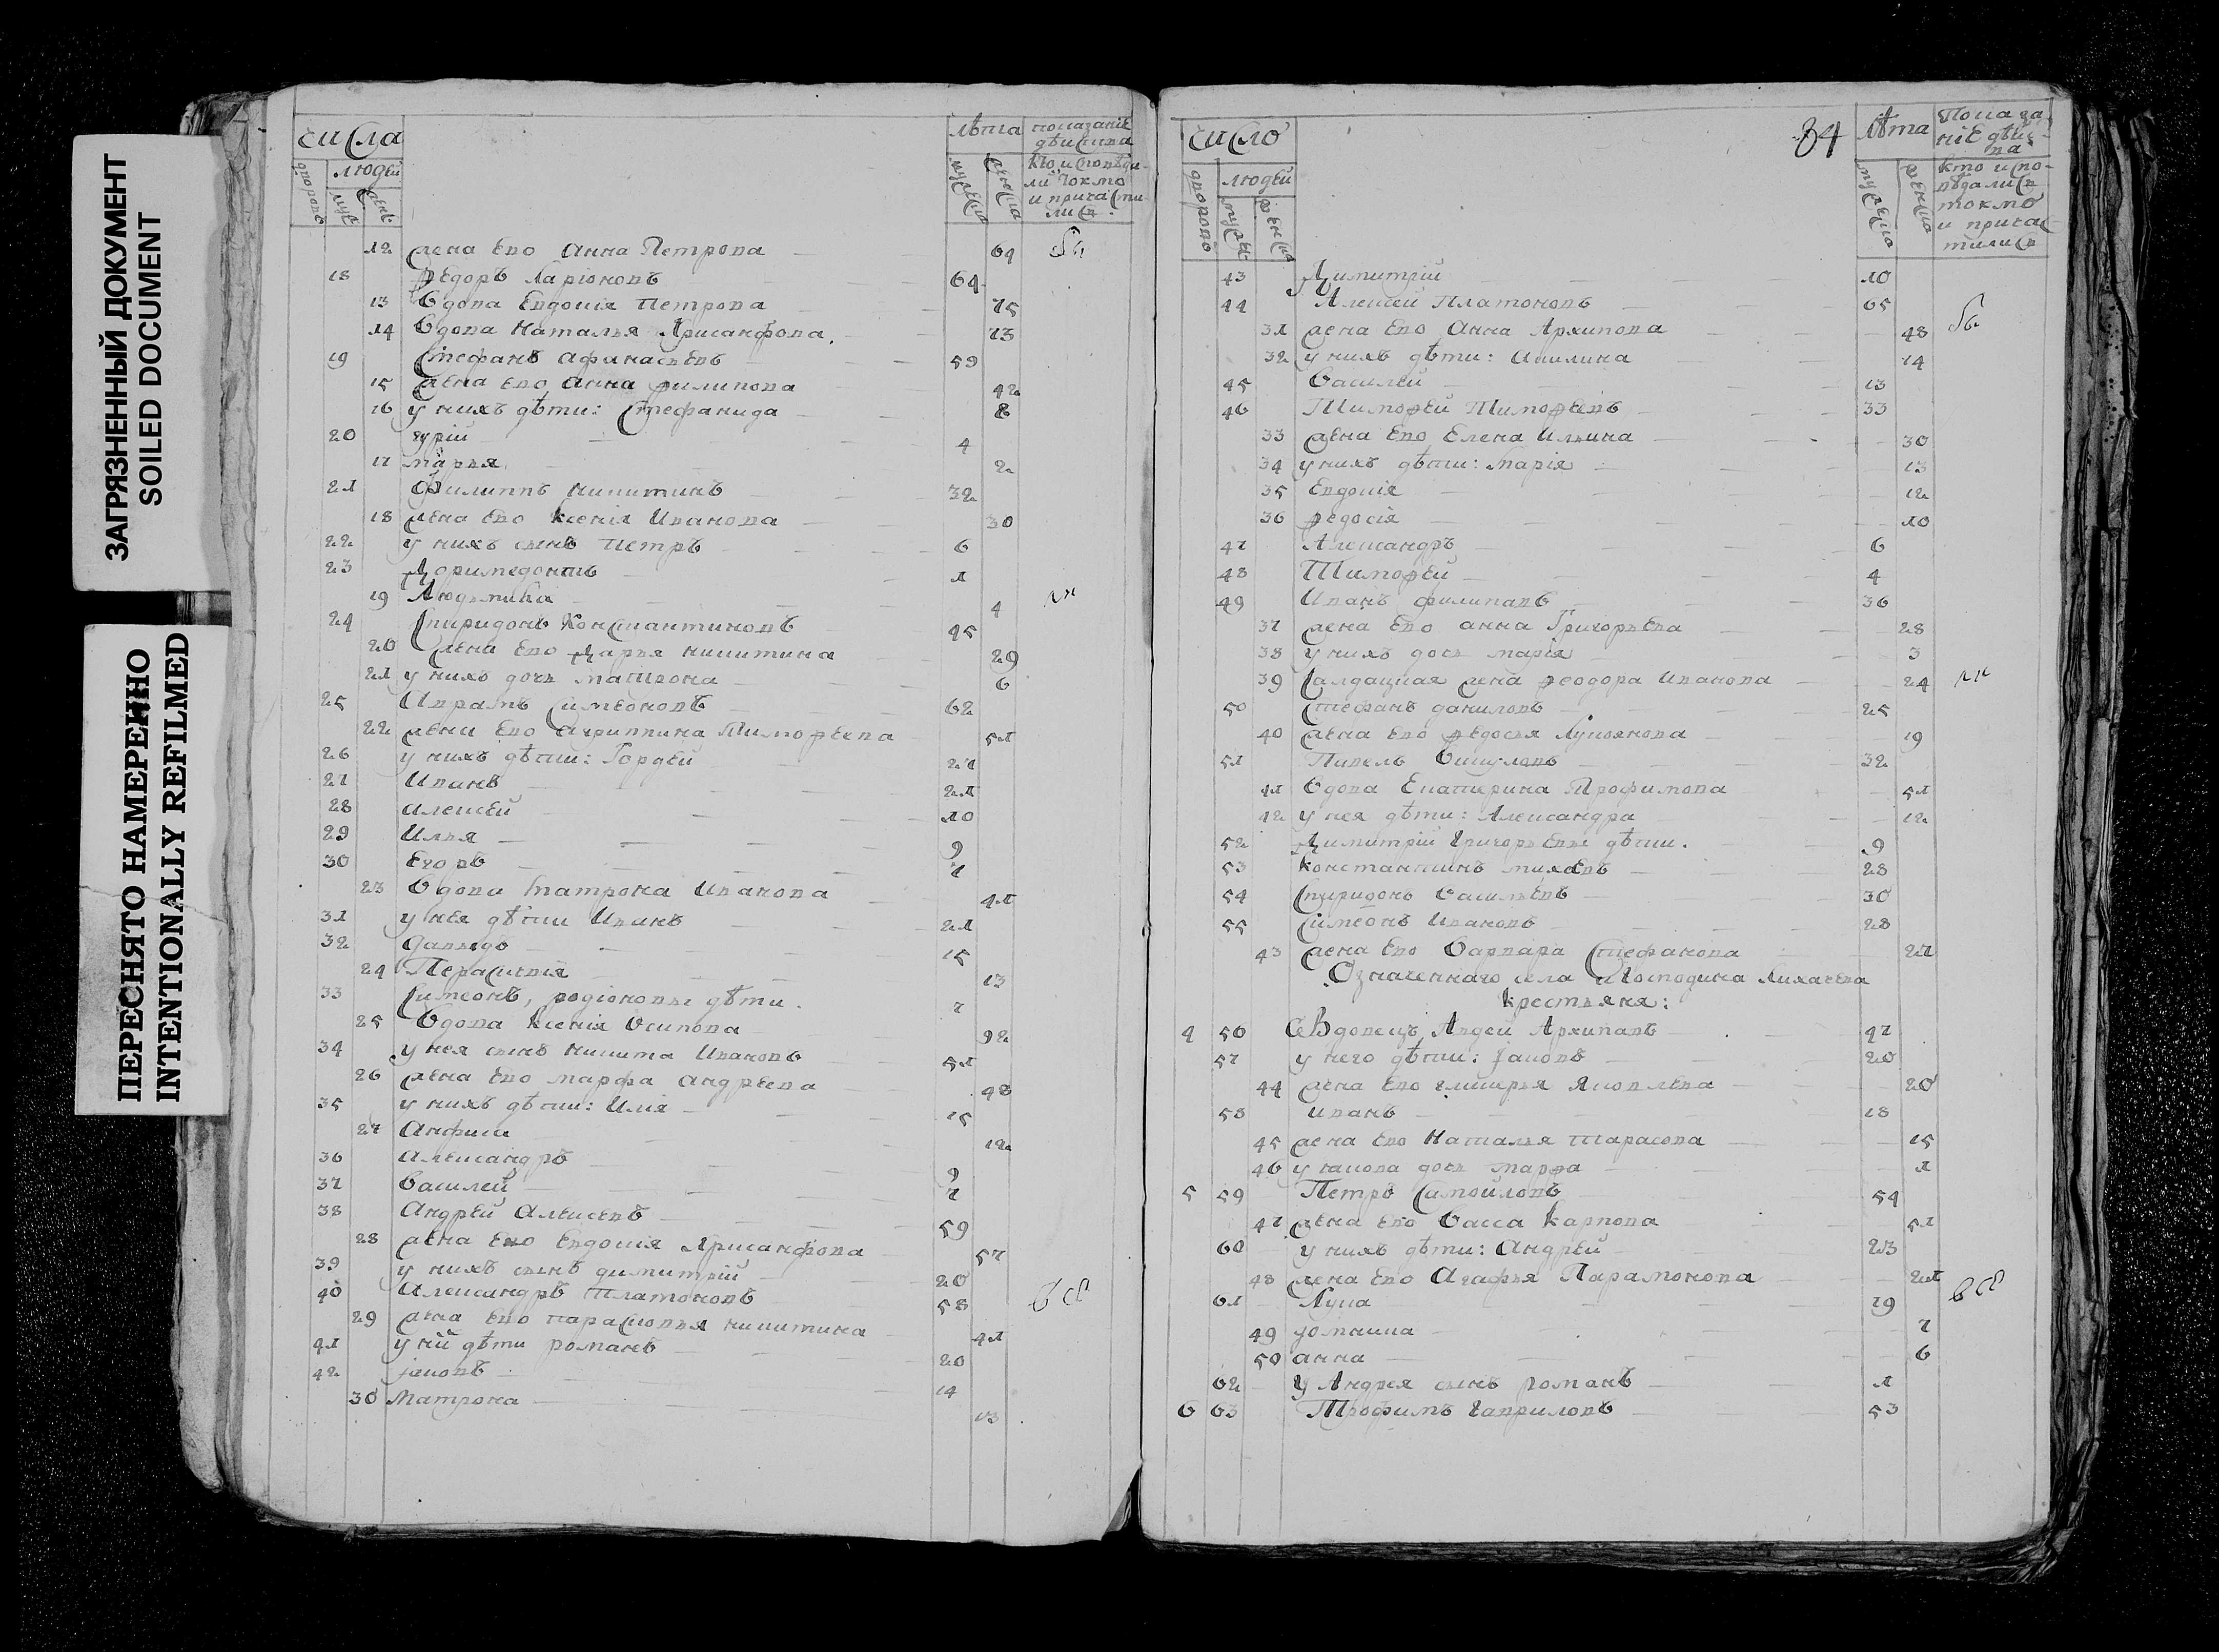 ЗАГРЯЗНЕННЫЙ ДОКУМЕНТ
SOILED DOCUMENT
ПЕРЕСНЯТО НАМЕРЕННО
INTENTIONALLY REFILMED
числа
лѣта
людей
12 жена его Анна Петрова 64
18 Ѳедоръ Ларіоновъ 64
13 Вдова Евдокія Петрова 75
14 Вдова Наталья Хрисанфова 73
19 Стефанъ Афанасьевъ 59
15 жена его Анна Филипова 42
16 у нихъ дѣти: Стефанида 8
20 Гурій 4
17 Марья 2
21 Филиппъ Никитинъ 32
18 жена его Ксенія Иванова 30
22 у нихъ сынъ Петръ 6
23 Доримедонтъ 1
19 Людмила 4
24 Спиридонъ Константиновъ 45
20 жена его Дарья Никитина 29
21 у нихъ дочь Матрона 6
25 Аврамъ Симеоновъ 62
22 жена его Агриппина Тимофеева 51
26 у нихъ дѣти: Гордей 27
27 Иванъ 21
28 Алексей 10
29 Илья 9
30 Егоръ 7
23 Вдова Матрона Иванова 41
31 у нея дѣти Иванъ 21
32 Давыдъ 15
24 Параскевія 13
33 Симеонъ, родіоновы дѣти. 7
25 Вдова Ксенія Осипова 92
34 у нея сынъ Никита Ивановъ 51
26 жена его Марфа Андреева 48
35 у нихъ дѣти: Илія 15
27 12
36 Александръ 9
37 Василей 7
38 Андрей Алексеевъ 59
28 жена его Евдокія Хрисанфова 57
39 у нихъ сынъ Димитрій 20
40 Александръ Платоновъ 58
29 жена его Парасковья Никитина 41
41 у ний дѣти романъ 20
42 Іаковъ 14
30 Матрона 13
число
84
лѣта
людей
43 Димитрій 10
44 Алексей Платоновъ 65
31 жена его Анна Архипова 48
32 у нихъ дѣти: Акилина 14
45 Василей 13
46 Тимофей Тимофеевъ 33
33 жена его Елена Ильина 30
34 у нихъ дѣти: Марія 13
35 Евдокія 12
36 Ѳедосія 10
47 Александръ 6
48 Тимофей 4
49 Иванъ Филиповъ 36
37 жена его Анна Григорьева 28
38 у нихъ дочь Марія 3
39 Салдацкая жена Ѳеодора Иванова 24
50 Стефанъ Даниловъ 25
40 жена его Ѳедосья Лукоянова 19
51 32
41 Вдова Екатерина Трофимова 51
42 у нея дѣти: Александра 12
52 Димитрій Григорьевы дѣти. 9
53 Константинъ 28
54 Спиридонъ Васильевъ 30
55 Симеонъ Ивановъ 28
43 жена его Варвара Стефанова 27
Означеннаго села Господина Лихачева
крестьяня:
4 56 Вдовецъ Авдей Архиповъ 47
57 у него дѣти: Іаковъ 20
44 жена его Гликерья Яковлева 20
58 Иванъ 18
45 жена его Наталья Тарасова 15
46 у Іакова дочь Марфа 1
5 59 Петръ Самойловъ 54
47 жена его Васса Карпова 51
60 у нихъ дѣти: Андрей 23
48 жена его Агафья Парамонова 21
61 Лука 19
49 Домника 7
50 Анна 6
62 у Андрея сынъ Романъ 1
6 63 Трофимъ Гавриловъ 53